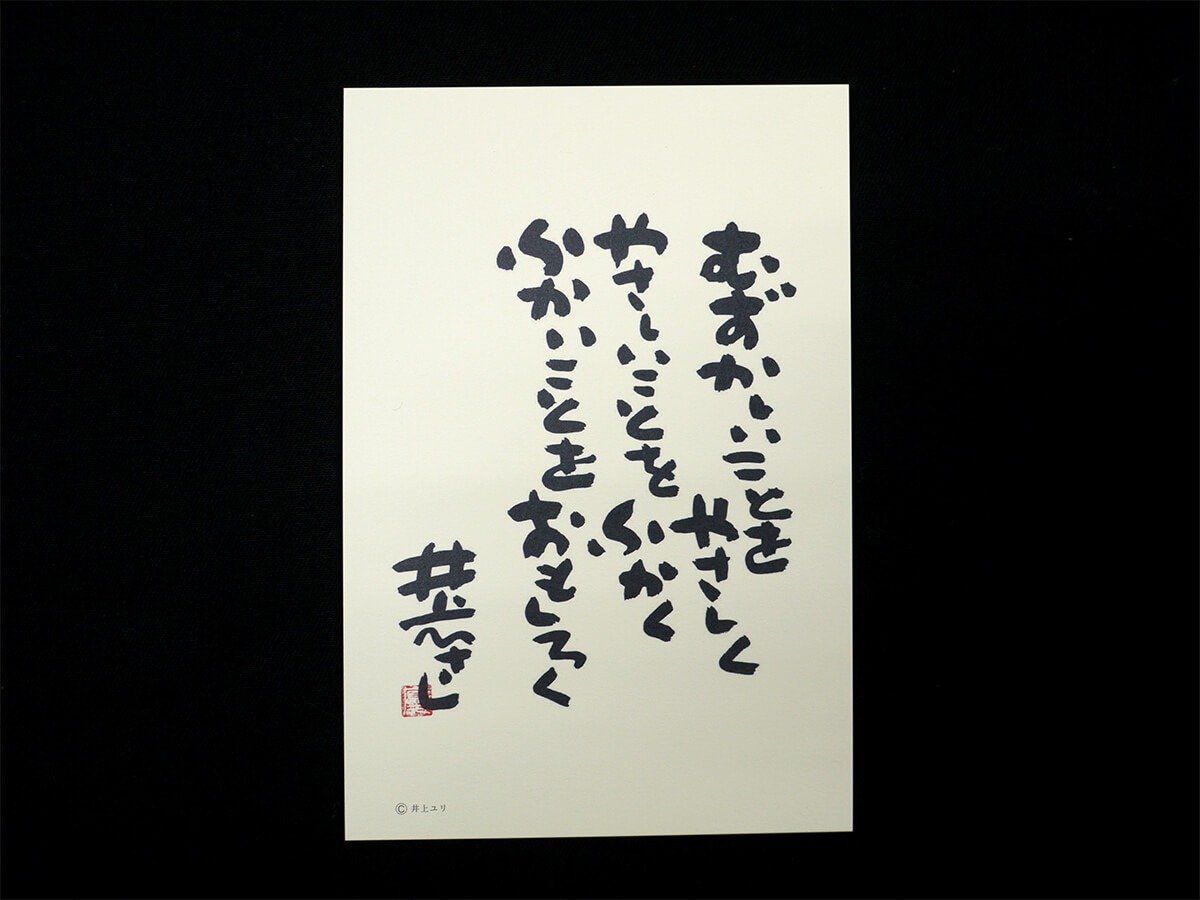 むずかしいことを
やさしく
やさしいことを
ふかく
ふかいことを
おもしろく
井上ひさし
©井上ユリ